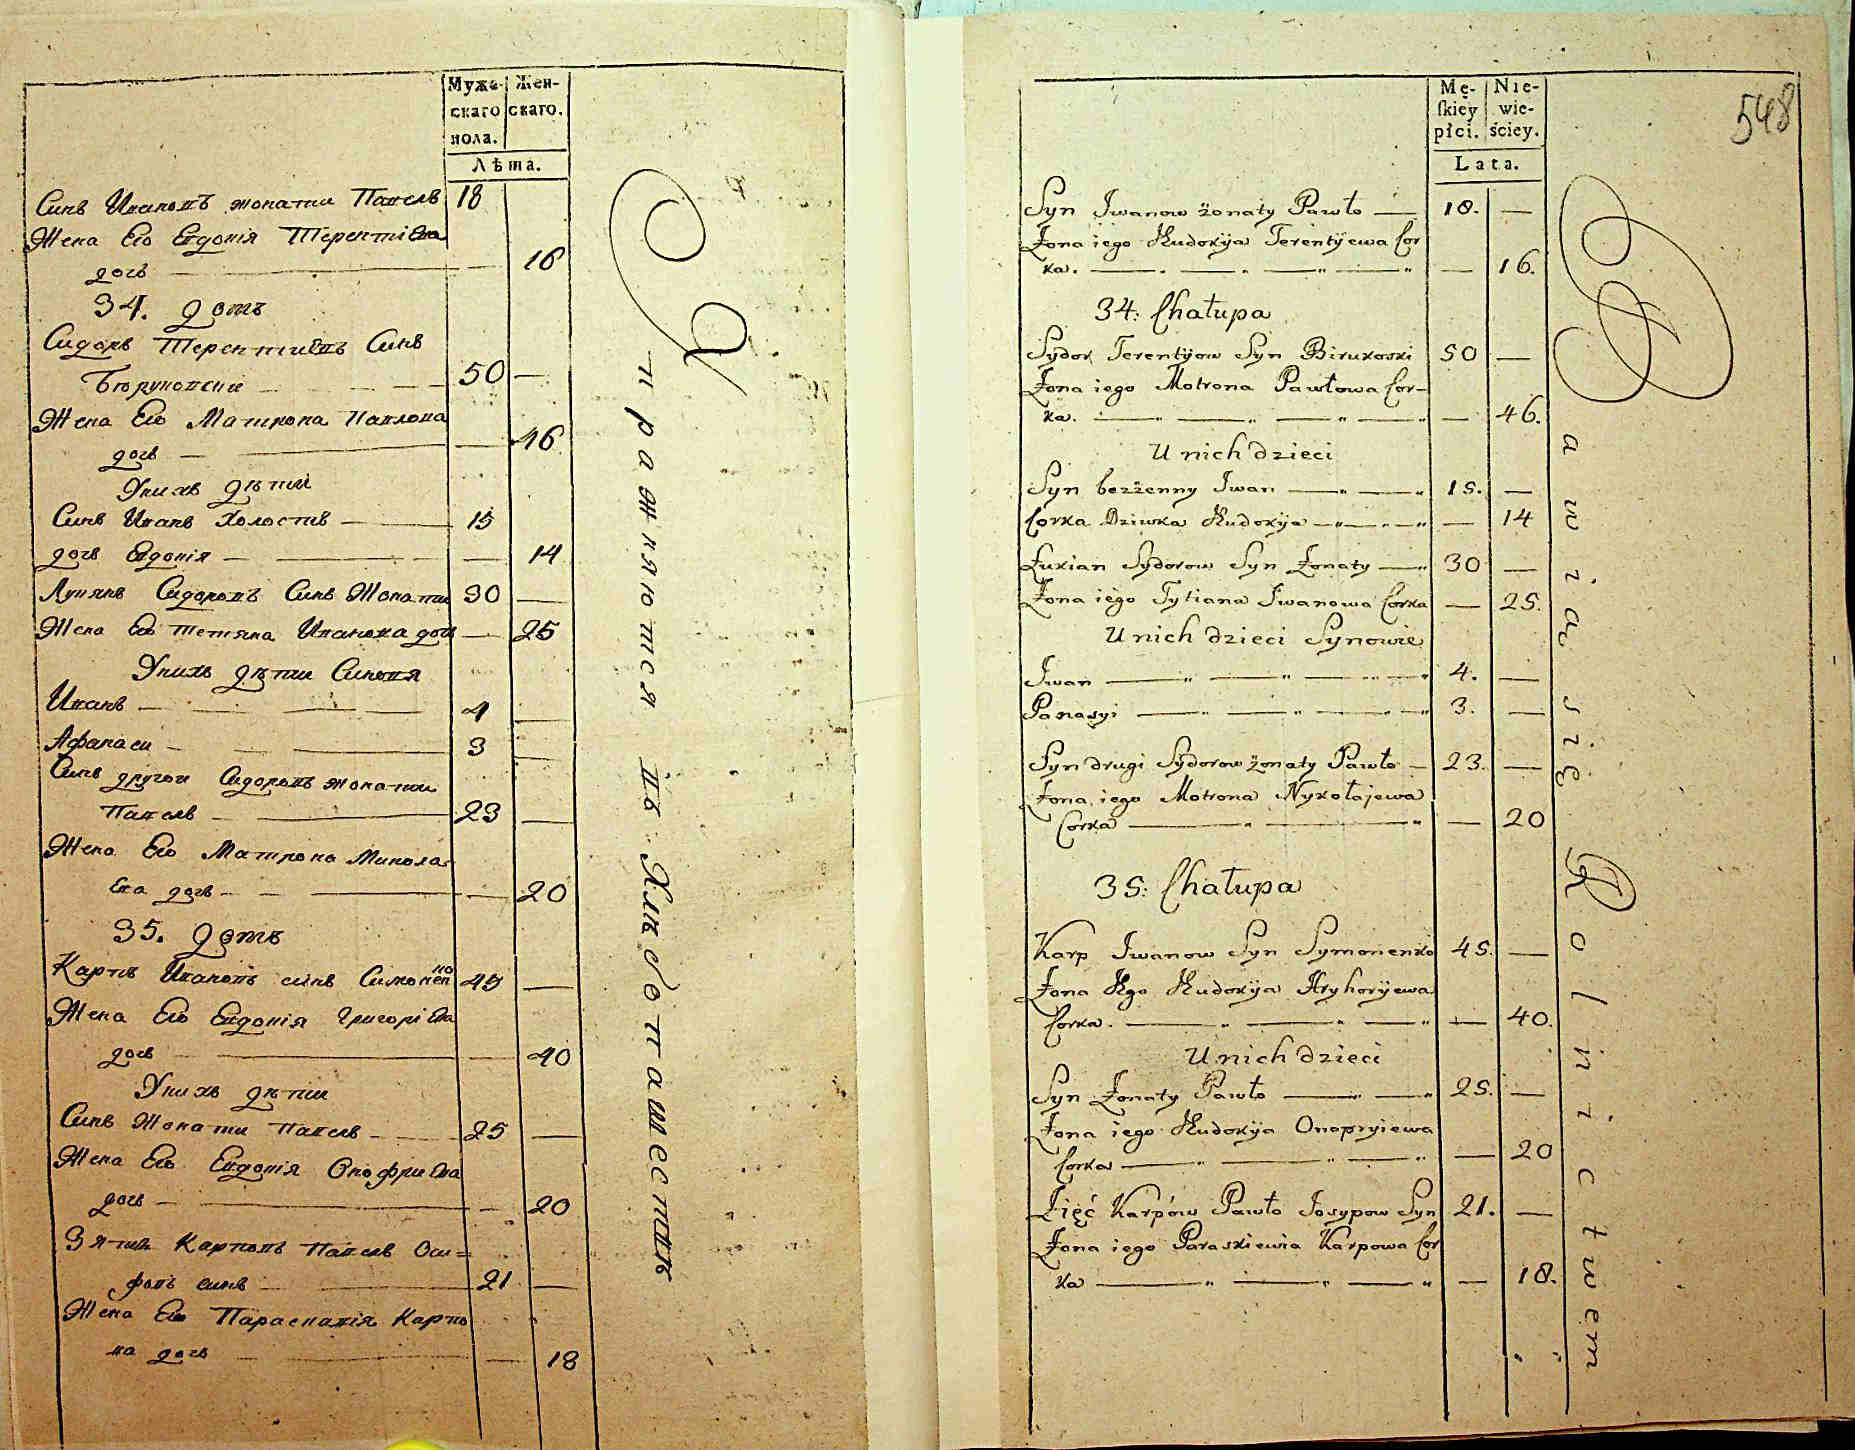 Муже-
скаго
пола.
Жен-
скаго.
Лѣта.
Синъ Ивановъ жонати Павелъ 18
Жена Его Евдокія Терентіева
дочь — 16
34. домъ
Сидоръ Терентиевъ Синъ
Бѣруковски — 50 —
Жена Его Матрона Павлова
дочь — 46
У нихъ дѣти
Синъ Иванъ Холостъ — 15
дочь Евдокія — 14
Лукянъ Сидоровъ Синъ Жонати 30 —
Жена Его Тетяна Иванова дочь — 25
У нихъ дѣти Синовя
Иванъ — 4 —
Афанаси — 3 —
Синъ другои Сидоровъ жонати
Павелъ — 23 —
Жена Его Матрона Микола-
ева дочь — 20
35. домъ
Карпъ Ивановъ синъ Симоненко 45 —
Жена Его Евдокія Григоріева
дочь — 40
У нихъ дѣти
Синъ Жонати Павелъ — 25 —
Жена Его Евдокія Онофриева
дочь — 20
Зять Карповъ Павелъ Оси=
фовъ синъ — 21 —
Жена Его Параскавія Карпо
ва дочь — 18
Упражняются въ Хлѣбопашествѣ
548
Mę-
ſkiey
płci.
Nie-
wie-
ściey.
Lata.
Syn Iwanow żonaty Pawło — 18. —
Żona iego Eudokÿa Terentÿewa Cor
ka. — 16.
34: Chałupa
Sydor Terentÿow Syn Birukoski 50 —
Żona iego Motrona Pawłowa Cor-
ka. — 46.
U nich dzieci
Syn bezżenny Iwan — 15. —
Corka Dziwka Eudokÿa — 14
Łukian Sydorow Syn Żonaty — 30 —
Żona iego Tytiana Iwanowa Corka — 25.
U nich dzieci Synowie
Iwan — 4. —
Panasyi — 3. —
Syn drugi Sydorow żonaty Pawło — 23. —
Żona iego Motrona Nykołajewa
Corka — 20
35: Chałupa
Karp Iwanow Syn Symonenko 45. —
Żona Ego Eudokÿa Hryhorÿewa
Corka. — 40.
U nich dzieci
Syn Żonaty Pawło — 25. —
Żona iego Eudokÿa Onopryiewa
Corka — 20
Zięć Karpów Pawło Josypow Syn 21. —
Żona iego Paraskiewia Karpowa Cor
ka — 18.
Bawią się Rolnictwem